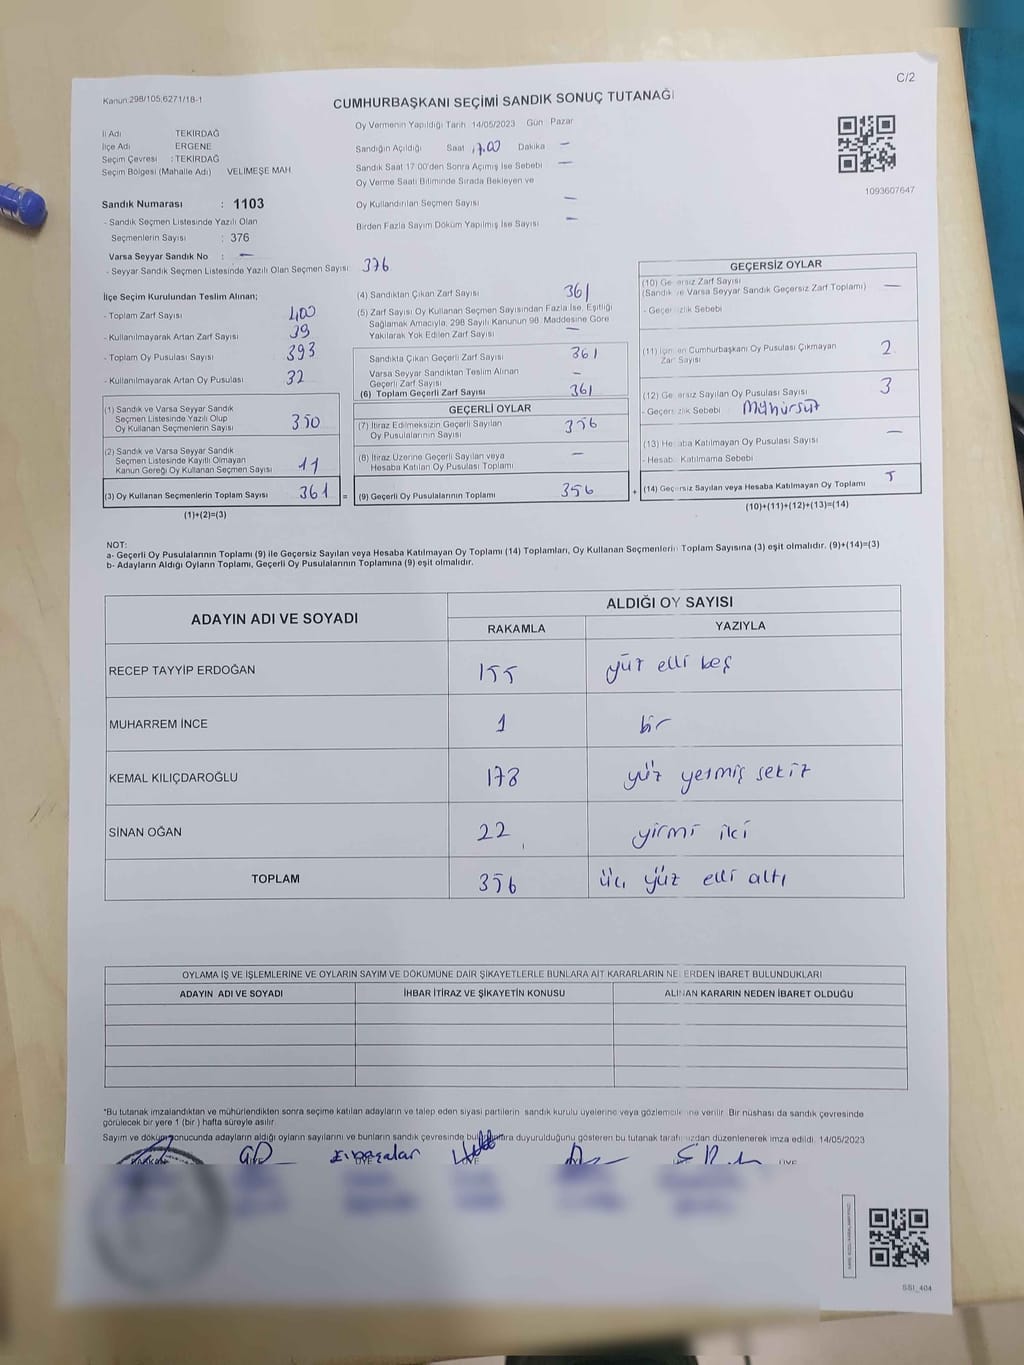 C/2
Kanun:298/105,6271/18-1
CUMHURBAŞKANI SEÇİMİ SANDIK SONUÇ TUTANAĞI
İl Adı TEKİRDAĞ
İlçe Adı ERGENE
Seçim Çevresi : TEKİRDAĞ
Seçim Bölgesi (Mahalle Adı) VELİMEŞE MAH
Sandık Numarası : 1103
- Sandık Seçmen Listesinde Yazılı Olan
Seçmenlerin Sayısı : 376
Varsa Seyyar Sandık No : —
- Seyyar Sandık Seçmen Listesinde Yazılı Olan Seçmen Sayısı: 376
Oy Vermenin Yapıldığı Tarih 14/05/2023 Gün Pazar
Sandığın Açıldığı Saat 17.00 Dakika —
Sandık Saat 17:00'den Sonra Açımış İse Sebebi —
Oy Verme Saati Bitiminde Sırada Bekleyen ve
Oy Kullandırılan Seçmen Sayısı —
Birden Fazla Sayım Döküm Yapılmış İse Sayısı —
1093607647
İlçe Seçim Kurulundan Teslim Alınan;
- Toplam Zarf Sayısı 400
- Kullanılmayarak Artan Zarf Sayısı 39
- Toplam Oy Pusulası Sayısı 393
- Kullanılmayarak Artan Oy Pusulası 32
(1) Sandık ve Varsa Seyyar Sandık
Seçmen Listesinde Yazılı Olup
Oy Kullanan Seçmenlerin Sayısı 350
(2) Sandık ve Varsa Seyyar Sandık
Seçmen Listesinde Kayıtlı Olmayan
Kanun Gereği Oy Kullanan Seçmen Sayısı 11
(3) Oy Kullanan Seçmenlerin Toplam Sayısı 361 =
(1)+(2)=(3)
(4) Sandıktan Çıkan Zarf Sayısı 361
(5) Zarf Sayısı Oy Kullanan Seçmen Sayısından Fazla İse, Eşitliği
Sağlamak Amacıyla, 298 Sayılı Kanunun 98. Maddesine Göre
Yakılarak Yok Edilen Zarf Sayısı —
Sandıkta Çıkan Geçerli Zarf Sayısı 361
Varsa Seyyar Sandıktan Teslim Alınan
Geçerli Zarf Sayısı —
(6) Toplam Geçerli Zarf Sayısı 361
GEÇERLİ OYLAR
(7) İtiraz Edilmeksizin Geçerli Sayılan
Oy Pusulalarının Sayısı 356
(8) İtiraz Üzerine Geçerli Sayılan veya
Hesaba Katılan Oy Pusulası Toplamı —
(9) Geçerli Oy Pusulalarının Toplamı 356 +
GEÇERSİZ OYLAR
(10) Geçersiz Zarf Sayısı
(Sandık ve Varsa Seyyar Sandık Geçersiz Zarf Toplamı) —
- Geçersizlik Sebebi
(11) İçinden Cumhurbaşkanı Oy Pusulası Çıkmayan
Zarf Sayısı 2
(12) Geçersiz Sayılan Oy Pusulası Sayısı 3
- Geçersizlik Sebebi Mühürsüz
(13) Hesaba Katılmayan Oy Pusulası Sayısı —
- Hesaba Katılmama Sebebi
(14) Geçersiz Sayılan veya Hesaba Katılmayan Oy Toplamı 5
(10)+(11)+(12)+(13)=(14)
NOT:
a- Geçerli Oy Pusulalarının Toplamı (9) ile Geçersiz Sayılan veya Hesaba Katılmayan Oy Toplamı (14) Toplamları, Oy Kullanan Seçmenlerin Toplam Sayısına (3) eşit olmalıdır. (9)+(14)=(3)
b- Adayların Aldığı Oyların Toplamı, Geçerli Oy Pusulalarının Toplamına (9) eşit olmalıdır.
ADAYIN ADI VE SOYADI ALDIĞI OY SAYISI
RAKAMLA YAZIYLA
RECEP TAYYİP ERDOĞAN 155 yüz elli beş
MUHARREM İNCE 1 bir
KEMAL KILIÇDAROĞLU 178 yüz yetmiş sekiz
SİNAN OĞAN 22 yirmi iki
TOPLAM 356 üç yüz elli altı
OYLAMA İŞ VE İŞLEMLERİNE VE OYLARIN SAYIM VE DÖKÜMÜNE DAİR ŞİKAYETLERLE BUNLARA AİT KARARLARIN NELERDEN İBARET BULUNDUKLARI
ADAYIN ADI VE SOYADI İHBAR İTİRAZ VE ŞİKAYETİN KONUSU ALINAN KARARIN NEDEN İBARET OLDUĞU
*Bu tutanak imzalandıktan ve mühürlendikten sonra seçime katılan adayların ve talep eden siyasi partilerin sandık kurulu üyelerine veya gözlemcilerine verilir. Bir nüshası da sandık çevresinde
görülecek bir yere 1 (bir ) hafta süreyle asılır.
Sayım ve döküm sonucunda adayların aldığı oyların sayılarını ve bunların sandık çevresinde bulunanlara duyurulduğunu gösteren bu tutanak tarafımızdan düzenlenerek imza edildi. 14/05/2023
ÜYE
SSI_404